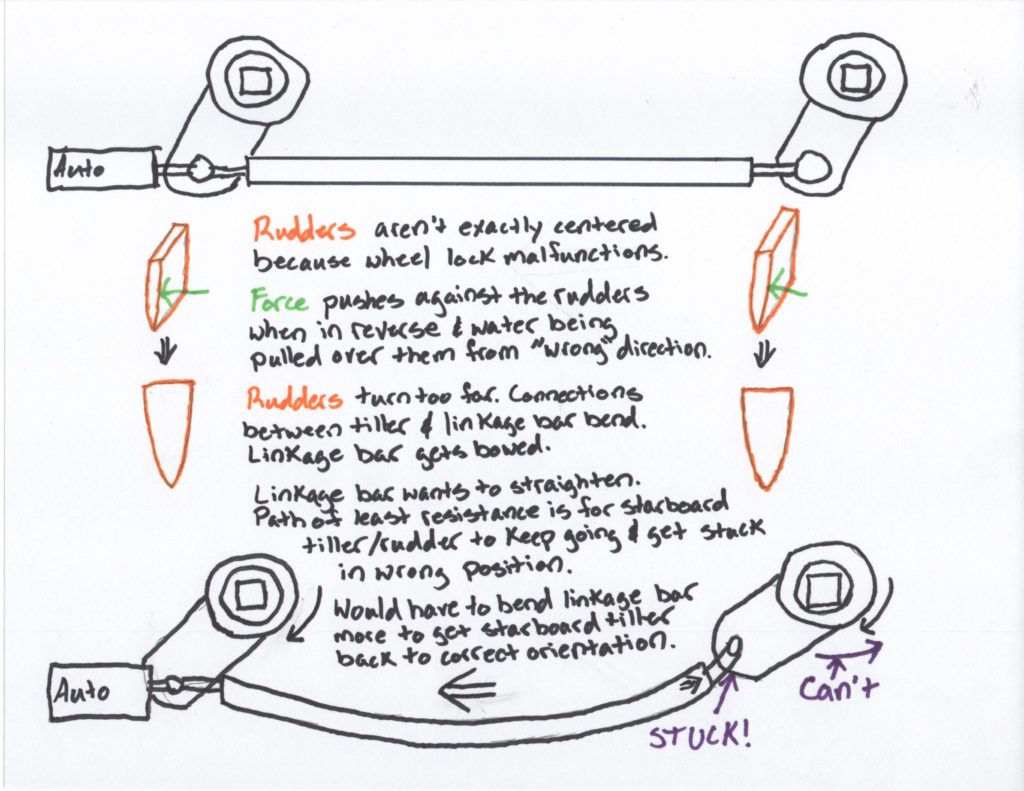 Auto
Rudders aren't exactly centered
because wheel lock malfunctions.
Force pushes against the rudders
when in reverse & water being
pulled over them from "wrong" direction.
Rudders turn too far. Connections
between tiller & linkage bar bend.
Linkage bar gets bowed.
Linkage bar wants to straighten.
Path of least resistance is for starboard
tiller/rudder to keep going & get stuck
in wrong position.
Would have to bend linkage bar
more to get starboard tiller
back to correct orientation.
Auto
Can't
STUCK!